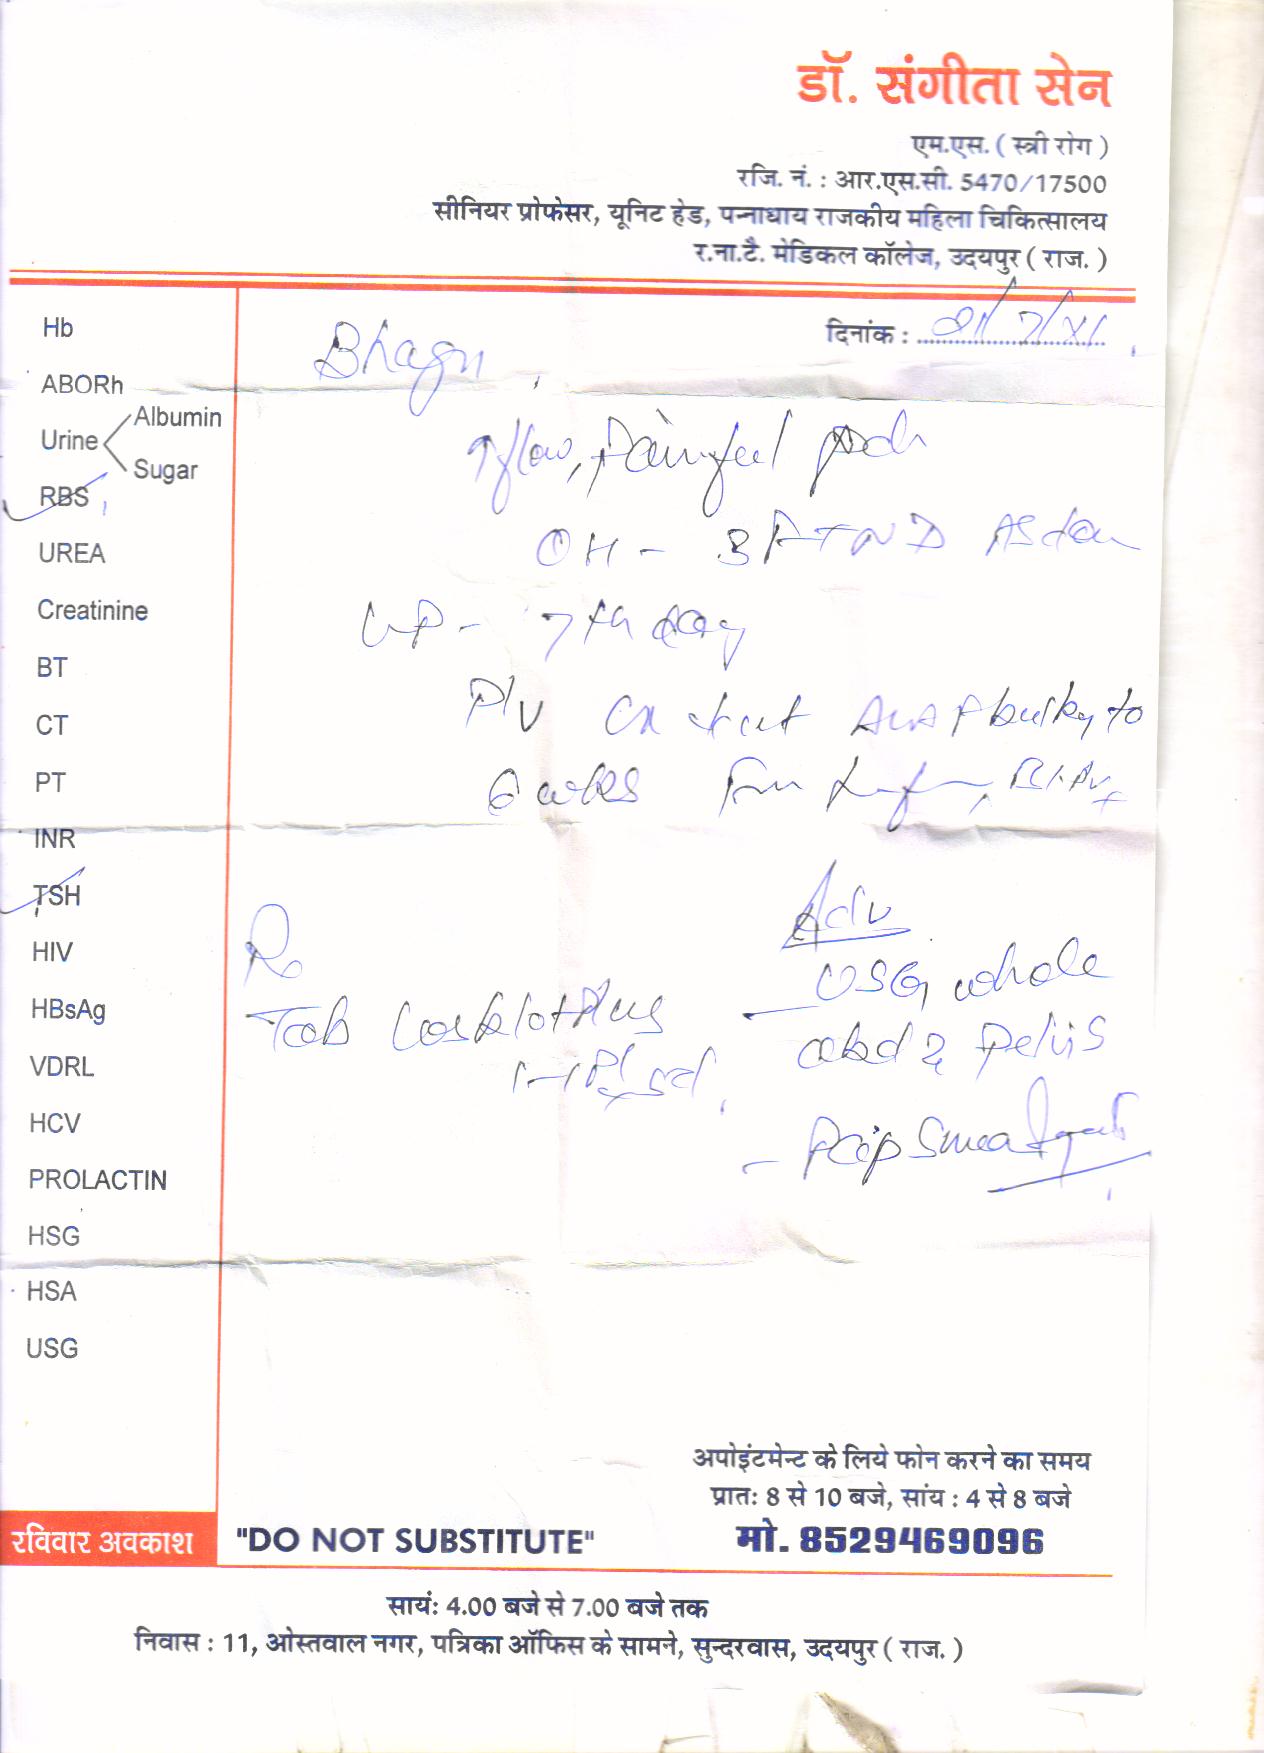 डॉ. संगीता सेन
एम.एस. ( स्त्री रोग )
रजि. नं. : आर.एस.सी. 5470/17500
सीनियर प्रोफेसर, यूनिट हेड, पन्नाधाय राजकीय महिला चिकित्सालय
र.ना.टै. मेडिकल कॉलेज, उदयपुर ( राज. )
दिनांक :
Hb
ABORh
Urine
Albumin
Sugar
RBS
UREA
Creatinine
BT
CT
PT
INR
TSH
HIV
HBsAg
VDRL
HCV
PROLACTIN
HSG
HSA
USG
painful
OH - 3 FTND
LMP - 7th day
P/V Cx bulky to
6 wks
Rx
Tab Plus
Adv
USG whole
abd & Pelvis
- Pap Smear
अपोइंटमेन्ट के लिये फोन करने का समय
प्रातः 8 से 10 बजे, सांय : 4 से 8 बजे
रविवार अवकाश
"DO NOT SUBSTITUTE"
मो. 8529469096
सायं: 4.00 बजे से 7.00 बजे तक
निवास : 11, ओस्तवाल नगर, पत्रिका ऑफिस के सामने, सुन्दरवास, उदयपुर ( राज. )